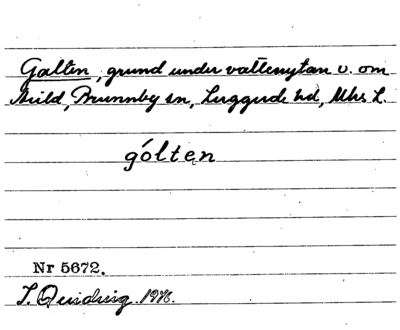 Galten, grund under vattenytan v. om
Arild, Brunnby sn, Luggude hd, Mhs L.
gólten
Nr 5672.
1916.